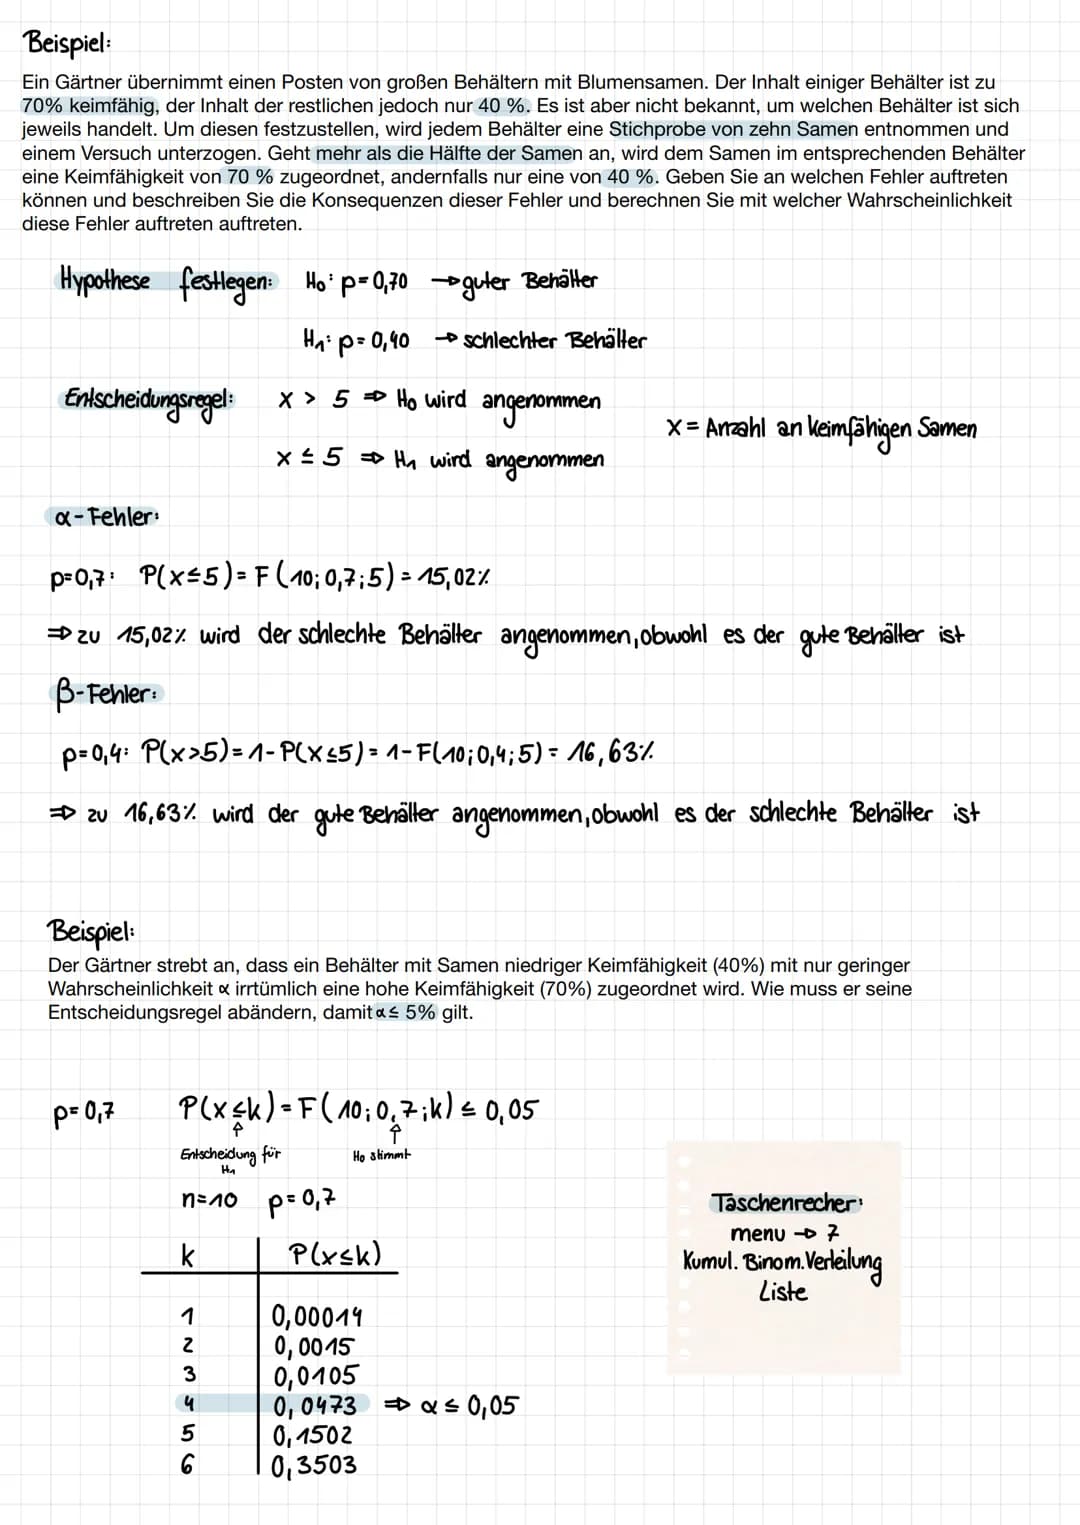 Beispiel:
Ein Gärtner übernimmt einen Posten von großen Behältern mit Blumensamen. Der Inhalt einiger Behälter ist zu
70% keimfähig, der Inhalt der restlichen jedoch nur 40 %. Es ist aber nicht bekannt, um welchen Behälter ist sich
jeweils handelt. Um diesen festzustellen, wird jedem Behälter eine Stichprobe von zehn Samen entnommen und
einem Versuch unterzogen. Geht mehr als die Hälfte der Samen an, wird dem Samen im entsprechenden Behälter
eine Keimfähigkeit von 70 % zugeordnet, andernfalls nur eine von 40 %. Geben Sie an welchen Fehler auftreten
können und beschreiben Sie die Konsequenzen dieser Fehler und berechnen Sie mit welcher Wahrscheinlichkeit
diese Fehler auftreten auftreten.
Hypothese festlegen: H₀: p=0,70 → guter Behälter
H₁: p=0,40 → schlechter Behälter
Entscheidungsregel: x > 5 ⇒ H₀ wird angenommen
x = Anzahl an keimfähigen Samen
x ≤ 5 ⇒ H₁ wird angenommen
α-Fehler:
p=0,7: P(x≤5)= F(10;0,7;5) = 15,02%
⇒ zu 15,02% wird der schlechte Behälter angenommen, obwohl es der gute Behälter ist
β-Fehler:
p=0,4: P(x>5)=1-P(x≤5)=1-F(10;0,4;5)= 16,63%
⇒ zu 16,63% wird der gute Behälter angenommen, obwohl es der schlechte Behälter ist
Beispiel:
Der Gärtner strebt an, dass ein Behälter mit Samen niedriger Keimfähigkeit (40%) mit nur geringer
Wahrscheinlichkeit α irrtümlich eine hohe Keimfähigkeit (70%) zugeordnet wird. Wie muss er seine
Entscheidungsregel abändern, damit α≤ 5% gilt.
p=0,7 P(x≤k)=F(10;0,7;k) ≤ 0,05
↑ ↑
Entscheidung für H₀ stimmt
H₁
n=10 p=0,7
k P(x≤k)
1 0,00014
2 0,0015
3 0,0105
4 0,0473 ⇒ α ≤ 0,05
5 0,1502
6 0,3503
Taschenrecher:
menu → 7
Kumul. Binom.Verteilung
Liste